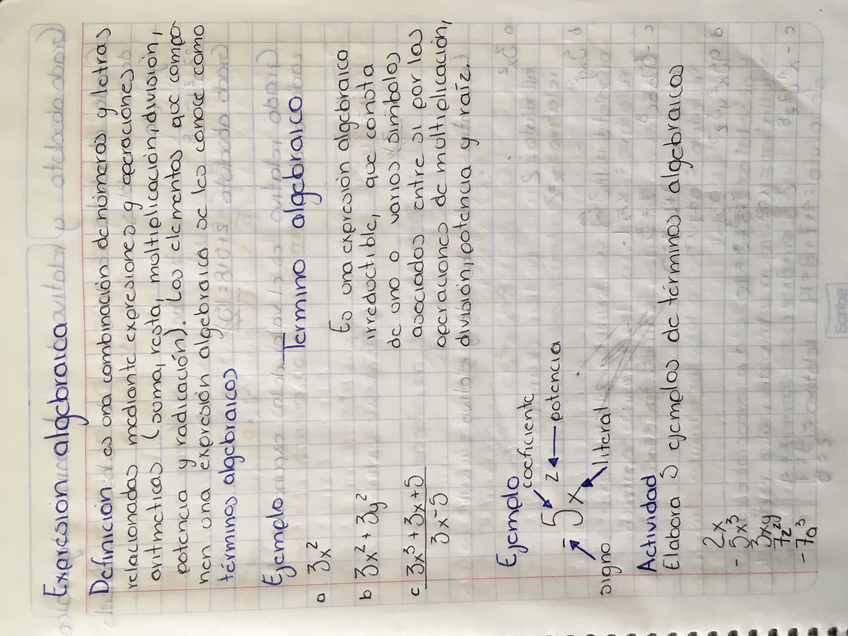 Expresión algebraica
Definición es una combinación de números y letras
relacionadas mediante expresiones y operaciones
aritmeticas (suma, resta, multiplicación, división,
potencia y radicación). Los elementos que compo-
nen una expresión algebraica se les conoce como
términos algebraicos
Ejemplo
a 3x²
b 3x² + 3y²
c 3x³ + 3x + 5
3x - 5
Termino algebraico
Es una expresión algebraica
irreductible, que consta
de uno o varios simbolos
asociados entre si por las
operaciones de multiplicación,
división, potencia y raíz.
Ejemplo
coeficiente
- 5x²
potencia
signo
literal
Actividad
Elabora 5 ejemplos de términos algebraicos
2x
- 5x³
3xy
- 7a³